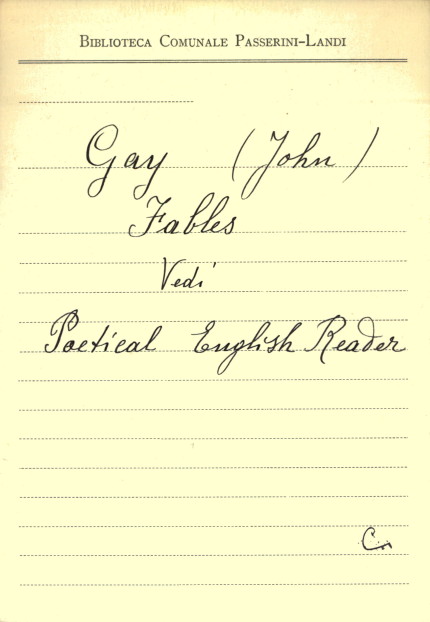 BIBLIOTECA COMUNALE PASSERINI-LANDI
Gay (John)
Fables
Vedi
Poetical English Reader